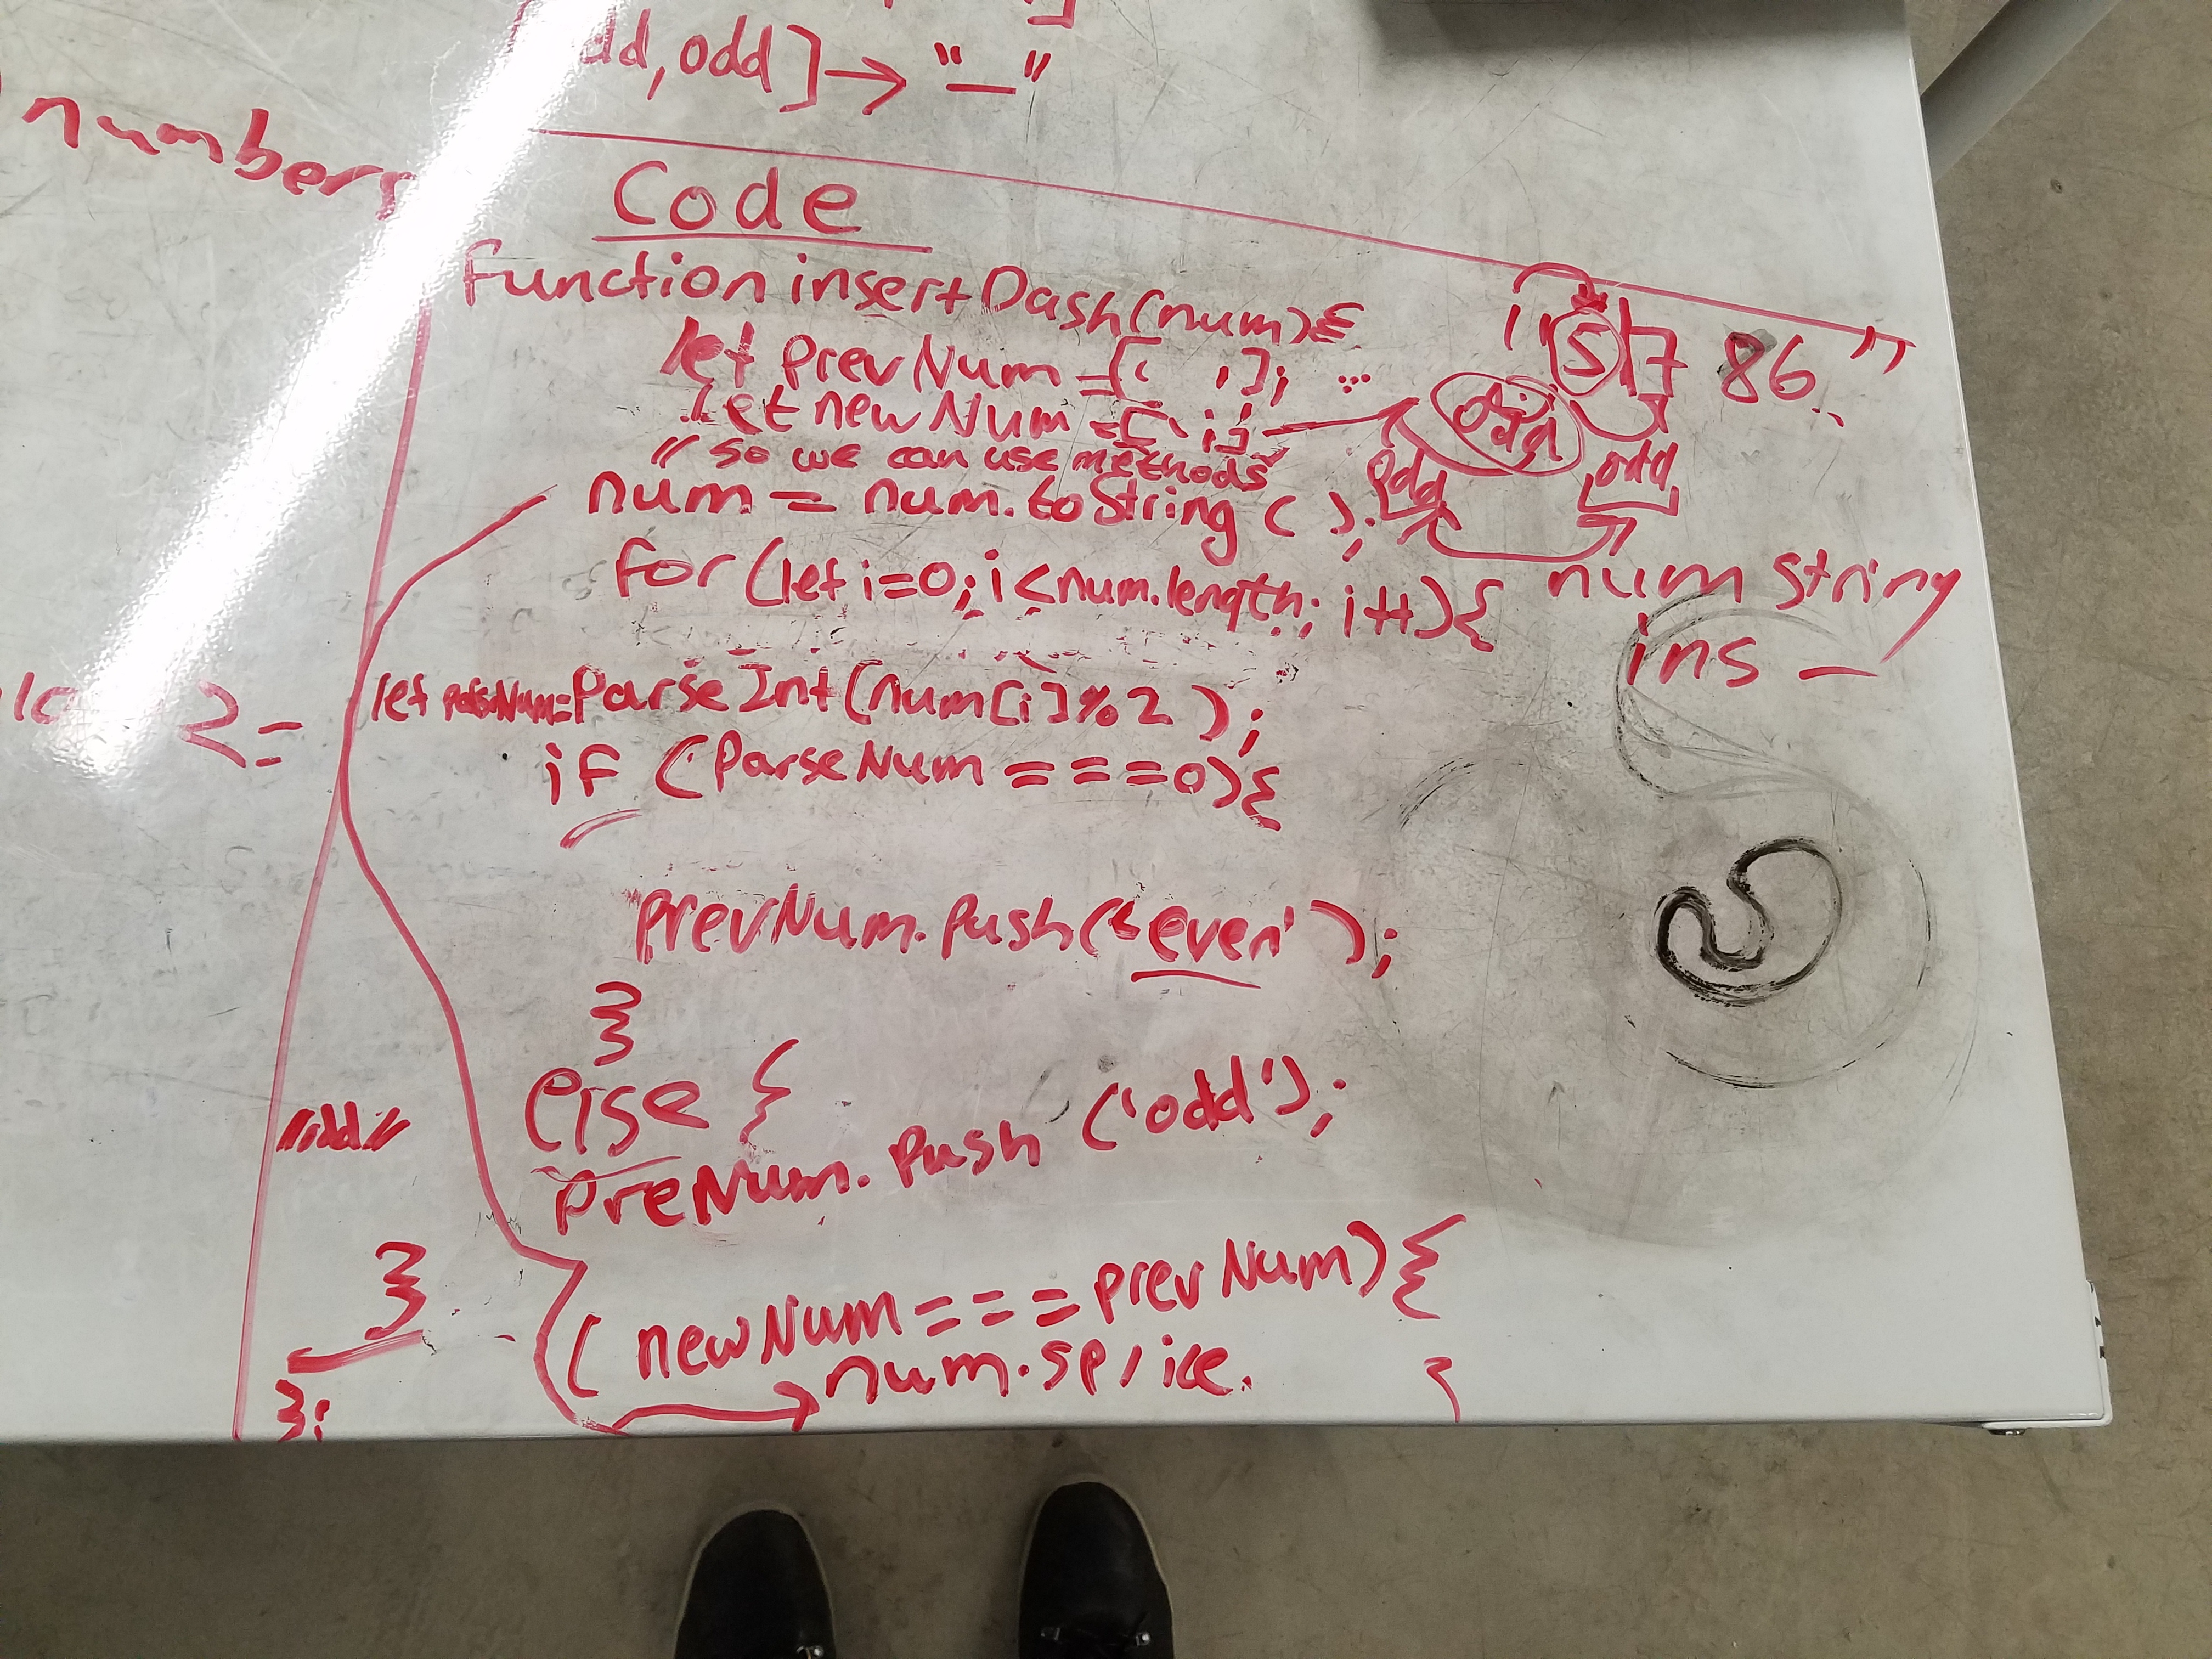 number
dd, odd] → "—"
2 -
Code
Function insertDash(num){
let prevNum = [' '];
let newNum = [' '];
"so we can use methods"
num = num.toString();
for(let i=0; i<num.length; i++){
let parseNum=ParseInt(num[i]%2);
if (ParseNum ===0){
prevNum.push('even');
}
else {
preNum.push('odd');
(newNum === prevNum){
num.splice.
}
};
"odd"
1 5 7 86 "
odd
num string
ins —